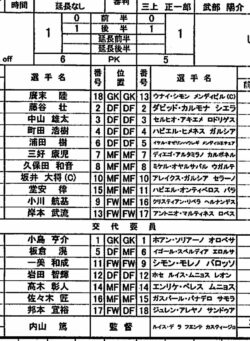 時間 延長なし 審判 三上 正一郎 武部 陽介
1 0 前半 1 1
1 後半 0
延長前半
延長後半
off 6 PK 5
選手名 番号 位置 位置 番号 選手名
廣末 陸 18 GK GK 13 ウナイ・シモン メンディビル (C)
藤谷 壮 2 DF DF 2 ダビッド・カルモナ シエラ
中山 雄太 3 DF DF 3 セルヒオ・アキエメ ロドリゲス
町田 浩樹 4 DF DF 4 ハビエル・ヒメネス ガルシア
浦田 樹 6 DF DF 5
三好 康児 7 MF MF 7 ディエゴ・アルタミラノ カルボネル
久保田 和音 8 MF MF 8
坂井 大将 (C) 10 MF MF 10 アレイクス・ガルシア セラーノ
堂安 律 15 MF MF 11 ハビエル・オンティベロス パラ
小川 航基 9 FW MF 16 クリスティアン・リベラ ヘルナンデス
岸本 武流 13 FW FW 17 アントニオ・マルティネス ロペス
交代要員
小島 亨介 1 GK GK 1 ホアン・ソリアーノ オロペサ
板倉 滉 5 DF MF 6
一美 和成 11 FW FW 9 シモン・モレノ バロッソ
岩田 智輝 12 DF DF 12 ホセ ルイス・ムニョス レオン
高木 彰人 14 MF MF 14 エンリケ・ペレス ムニョス
佐々木 匠 16 MF MF 15 ガスパール・パナデロ サモラ
邦本 宜裕 17 FW DF 18 ジュレン・アレヤノ サンドウア
内山 篤 監督 ルイス・デ ラ フエンテ カスティージョ